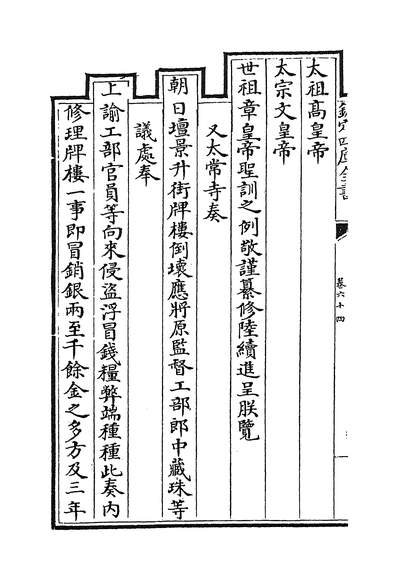 欽定四庫全書
卷六十四
太祖高皇帝
太宗文皇帝
世祖章皇帝聖訓之例敬謹纂修陸續進呈朕覽
又太常寺奏
朝日壇景升街牌樓倒壞應將原監督工部郎中藏珠等
議處奉
上諭工部官員等向來侵盜浮冒錢糧弊端種種此奏內
修理牌樓一事即冒銷銀兩至千餘金之多方及三年